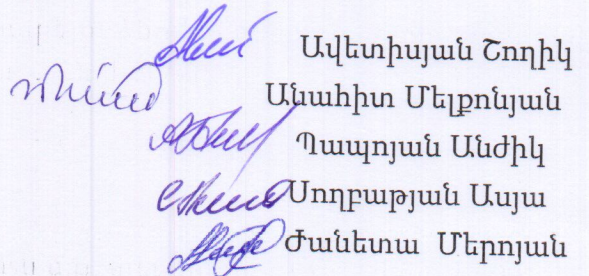 Ավետիսյան Շողիկ
Անահիտ Մելքոնյան
Պապոյան Անժիկ
Սողբաթյան Ասյա
Ժանետա Մերոյան